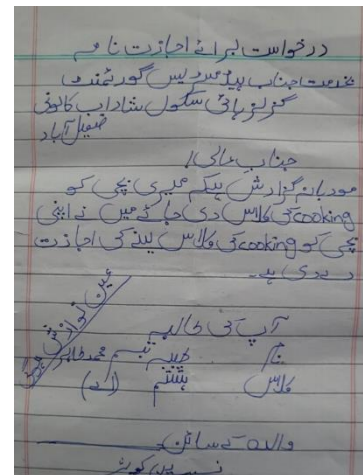 درخواست برائے اجازت نامہ
بخدمت جناب ہیڈمسٹریس گورنمنٹ
گرلز ہائی سکول شاداب کالونی
فیصل آباد
جناب عالی!
مودبانہ گزارش ہیکہ میری بچی کو
cookingکی کلاس دی جائے میں نے اپنی
بچی کو cookingکی کلاس لینے کی اجازت
دے دی ہے۔
عین نوازش ہوگی
آپ کی طالبہ
نام طیبہ تبسم محمد طاہر
کلاس ہشتم (اے)
والدہ کے سائن